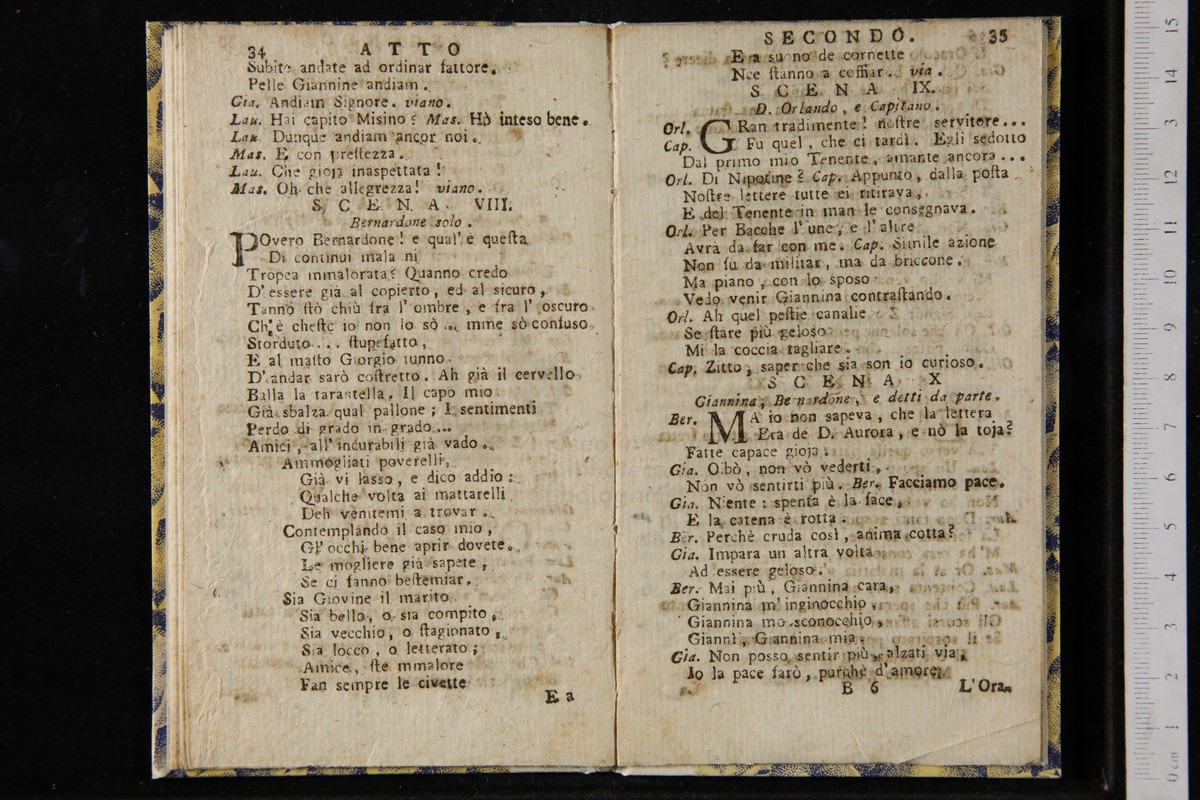 34 ATTO
Subito andate ad ordinar fattore.
Pelle Giannine andiam.
Gia. Andiam Signore. viano.
Lau. Hai capito Misino? Mas. Hò inteso bene.
Lau. Dunque andiam ancor noi.
Mas. E con preſtezza.
Lau. Che gioja inaspettata!
Mas. Oh che allegrezza! viano.
SCENA VIII.
Bernardone solo.
POvero Bernardone! e qual' è queſta
Di continui mala ni
Tropea mmalorata? Quanno credo
D' essere già al copierto, ed al sicuro,
Tanno ſtò chiù fra l' ombre, e fra l' oscuro
Ch' è cheſte io non lo sò ... mme sò confuso
Storduto... ſtupefatto,
E al maſto Giorgio tunno
D' andar sarò coſtretto. Ah già il cervello
Balla la tarantella. Il capo mio
Già sbalza qual pallone; I sentimenti
Perdo di grado in grado...
Amici, all' incurabili già vado.
Ammogliati poverelli,
Già vi lasso, e dico addio:
Qualche volta ai mattarelli
Deh venitemi a trovar.
Contemplando il caso mio,
Gl' occhi bene aprir dovete.
Le mogliere già sapete,
Se ci fanno beſtemiar.
Sia Giovine il marito
Sia bello, o sia compito,
Sia vecchio, o ſtagionato,
Sia locco, o letterato;
Amice, ſte mmalore
Fan sempre le civette
E a
SECONDO. 35
E a suono de cornette
Nce ſtanno a coffiar. via.
SCENA IX.
D. Orlando, e Capitano.
Orl. GRan tradimente! noſtre servitore...
Cap. Fu quel, che ci tardì. Egli sedotto
Dal primo mio Tenente, amante ancora...
Orl. Di Nipotine? Cap. Appunto, dalla poſta
Noſtre lettere tutte ei ritirava,
E del Tenente in man le consegnava.
Orl. Per Bacche l' une, e l' altre
Avrà da far con me. Cap. Simile azione
Non fu da militar, ma da briccone.
Ma piano, con lo sposo
Vedo venir Giannina contraſtando.
Orl. Ah quel peſtie canalie
Se ſtare più geloso
Mi la coccia tagliare.
Cap. Zitto, saper che sia son io curioso.
SCENA X
Giannina, Bernardone, e detti da parte.
Ber. MA io non sapeva, che la lettera
Era de D. Aurora, e nò la toja?
Fatte capace gioja.
Gia. Oibò, non vò vederti,
Non vò sentirti più. Ber. Facciamo pace.
Gia. Niente: spenta è la face,
E la catena è rotta.
Ber. Perchè cruda così, anima cotta?
Gia. Impara un altra volta
Ad essere geloso.
Ber. Mai più, Giannina cara,
Giannina m' inginocchio,
Giannina mo sconocchio,
Giannì, Giannina mia.
Gia. Non posso sentir più, alzati via,
Io la pace farò, purchè d'amore
B 6 L'Ora-